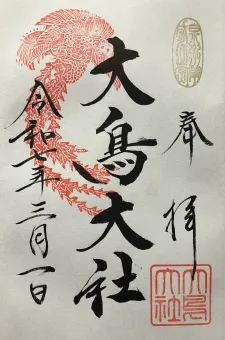 奉拝
大鳥大社
令和七年三月一日
大鳥大社